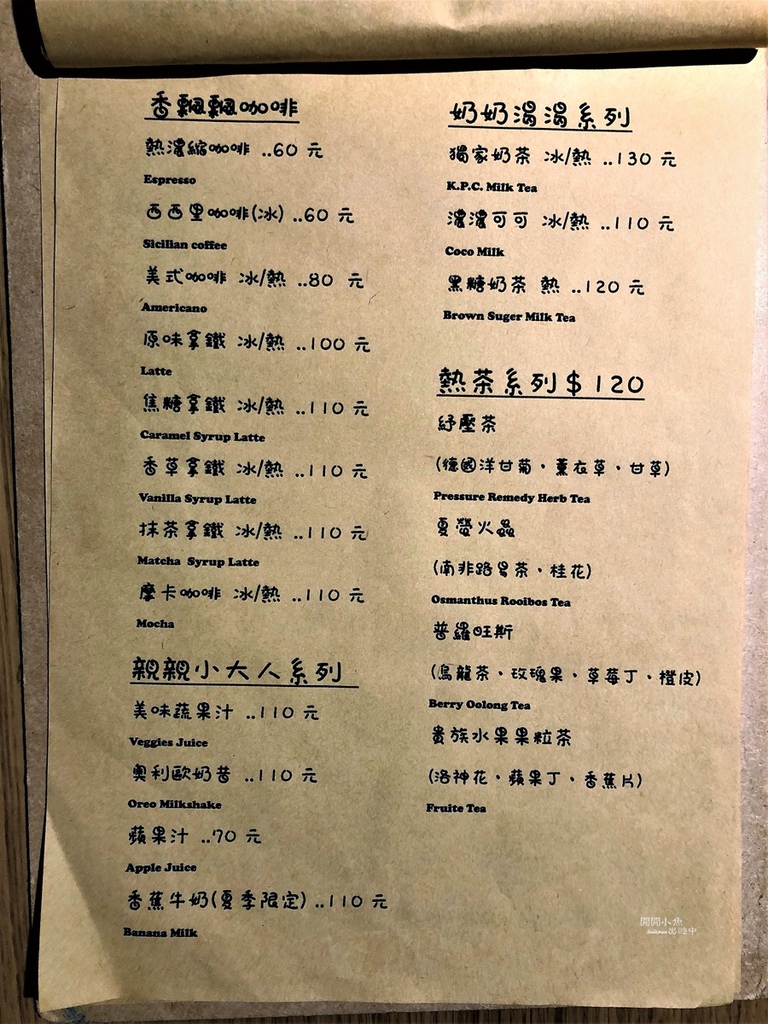 香飄飄咖啡
熱濃縮咖啡 ..60 元
Espresso
西西里咖啡(冰) ..60 元
Sicilian coffee
美式咖啡 冰/熱 ..80 元
Americano
原味拿鐵 冰/熱 ..100 元
Latte
焦糖拿鐵 冰/熱 ..110 元
Caramel Syrup Latte
香草拿鐵 冰/熱 ..110 元
Vanilla Syrup Latte
抹茶拿鐵 冰/熱 ..110 元
Matcha Syrup Latte
摩卡咖啡 冰/熱 ..110 元
Mocha
親親小大人系列
美味蔬果汁 ..110 元
Veggies Juice
奧利歐奶昔 ..110 元
Oreo Milkshake
蘋果汁 ..70 元
Apple Juice
香蕉牛奶(夏季限定) ..110 元
Banana Milk
奶奶濄濄系列
獨家奶茶 冰/熱 ..130 元
K.P.C. Milk Tea
濃濃可可 冰/熱 ..110 元
Coco Milk
黑糖奶茶 熱 ..120 元
Brown Suger Milk Tea
熱茶系列$120
紓壓茶
(德國洋甘菊、薰衣草、甘草)
Pressure Remedy Herb Tea
夏螢火蟲
(南非路易茶、桂花)
Osmanthus Rooibos Tea
普羅旺斯
(烏龍茶、玫瑰果、草莓丁、橙皮)
Berry Oolong Tea
貴族水果果粒茶
(洛神花、蘋果丁、香蕉片)
Fruite Tea
開開小魚
出遊中